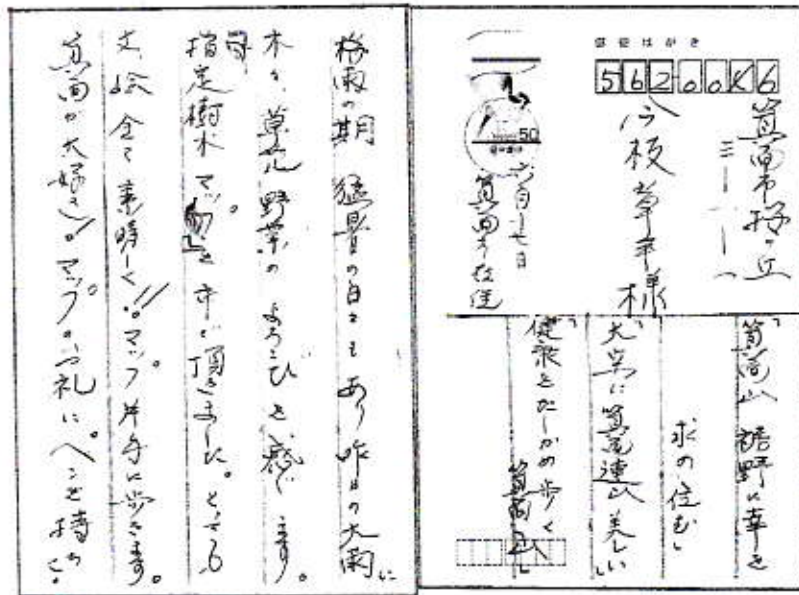 郵便はがき
562-0046
箕面市桜ヶ丘
三-一-一
様
50
六月十七日
箕面市在住
箕面山 裾野に幸を
求め住む
大空に箕面連山 美しい
健康をたしかめ歩く
箕面山
梅雨の期 猛暑の日々もあり昨日の大雨に
木々、草花 野菜の よろこびを感じます。
指定樹木マップを 市で頂きました。とっても
文、絵 全て素晴しく!! マップ片手に歩きます。
箕面が大好き!! マップのお礼に ペンを持ち